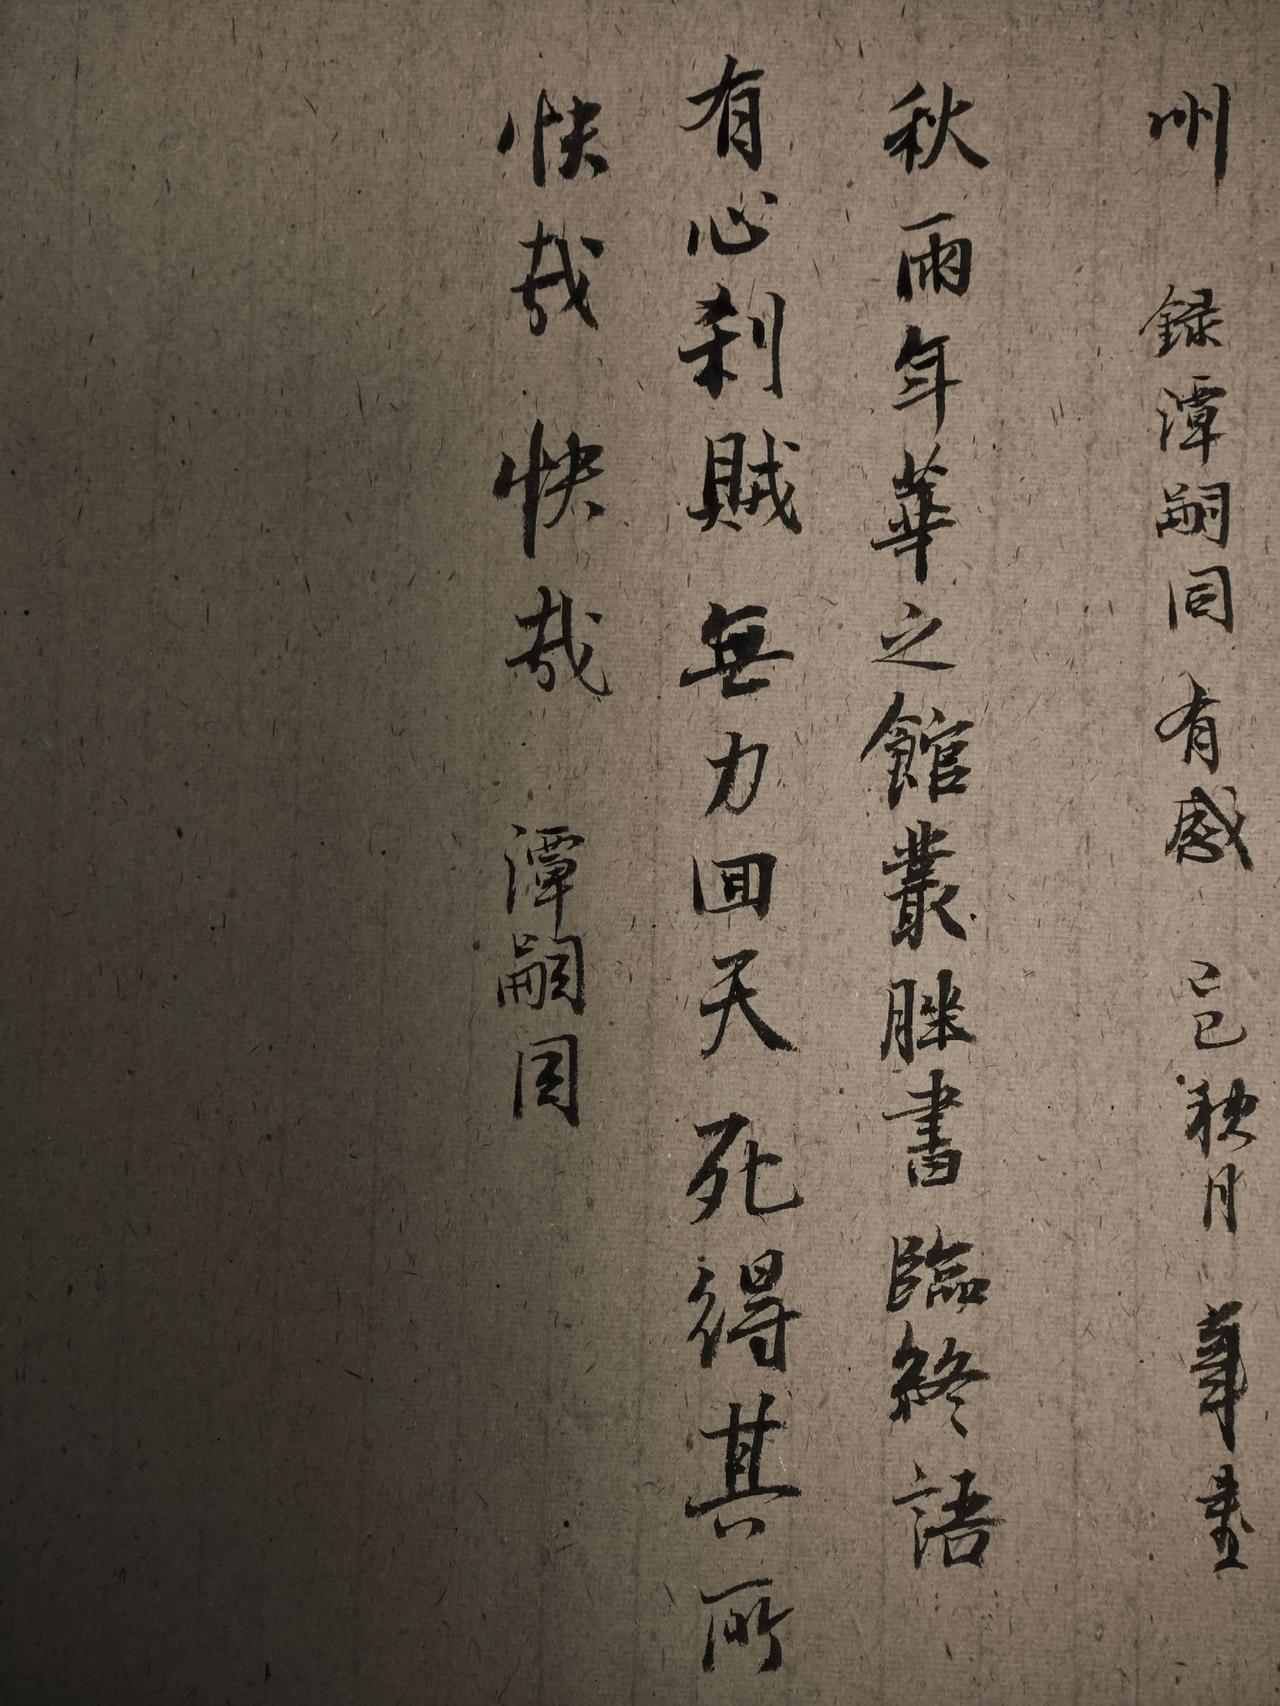 州 録潭嗣同 有感 己巳秋月
秋雨年華之館叢脞書 臨終語
有心刹賊 無力囬天 死得其所
快哉 快哉 潭嗣同